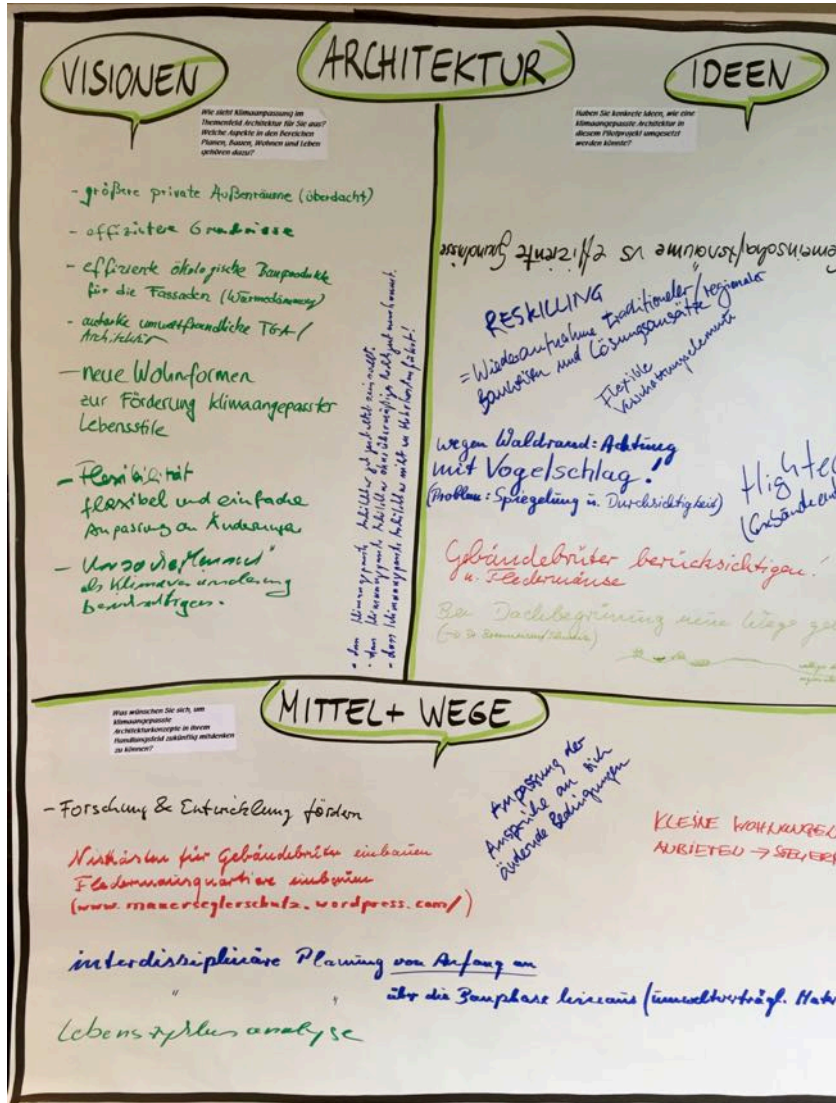 ARCHITEKTUR
VISIONEN
Wie sieht Klimaanpassung im
Themenfeld Architektur für Sie aus?
Welche Aspekte in den Bereichen
Planen, Bauen, Wohnen und Leben
gehören dazu?
- größere private Außenräume (überdacht)
- effizientere Grundrisse
- effiziente ökologische Bauprodukte
für die Fassaden (Wärmedämmung)
- autarke umweltfreundliche TGA/
Architektur
- neue Wohnformen
zur Förderung klimaangepasster
Lebensstile
- Flexibilität
flexibel und einfache
Anpassung an Änderungen
als Klimaveränderung
berücksichtigen.
IDEEN
Haben Sie konkrete Ideen, wie eine
klimaangepasste Architektur in
diesem Pilotprojekt umgesetzt
werden könnte?
emeinschaftsräume vs effiziente Grundrisse
RESKILLING
= Wiederaufnahme traditioneller/regionaler
Bauweisen und Lösungsansätze
Flexible
Verschattungselemente
wegen Waldrand: Achtung
mit Vogelschlag!
(Problem: Spiegelung u. Durchsichtigkeit)
Hightec
Gebäudebrüter berücksichtigen!
u. Fledermäuse
Bei Dachbegrünung neue Wege ge
MITTEL + WEGE
Was wünschen Sie sich, um
klimaangepasste
Architekturkonzepte in Ihrem
Handlungsfeld zukünftig mitdenken
zu können?
- Forschung & Entwicklung fördern
Anpassung der
Ansprüche an sich
ändernde Bedingungen
KLEINE WOHNUNGEN
ANBIETEN →
Nistkästen für Gebäudebrüter einbauen
Fledermausquartiere einbauen
(www.mauerseglerschutz.wordpress.com/)
interdisziplinäre Planung von Anfang an
" " über die Bauphase hinaus (umweltverträgl. Mater
Lebenszyklusanalyse